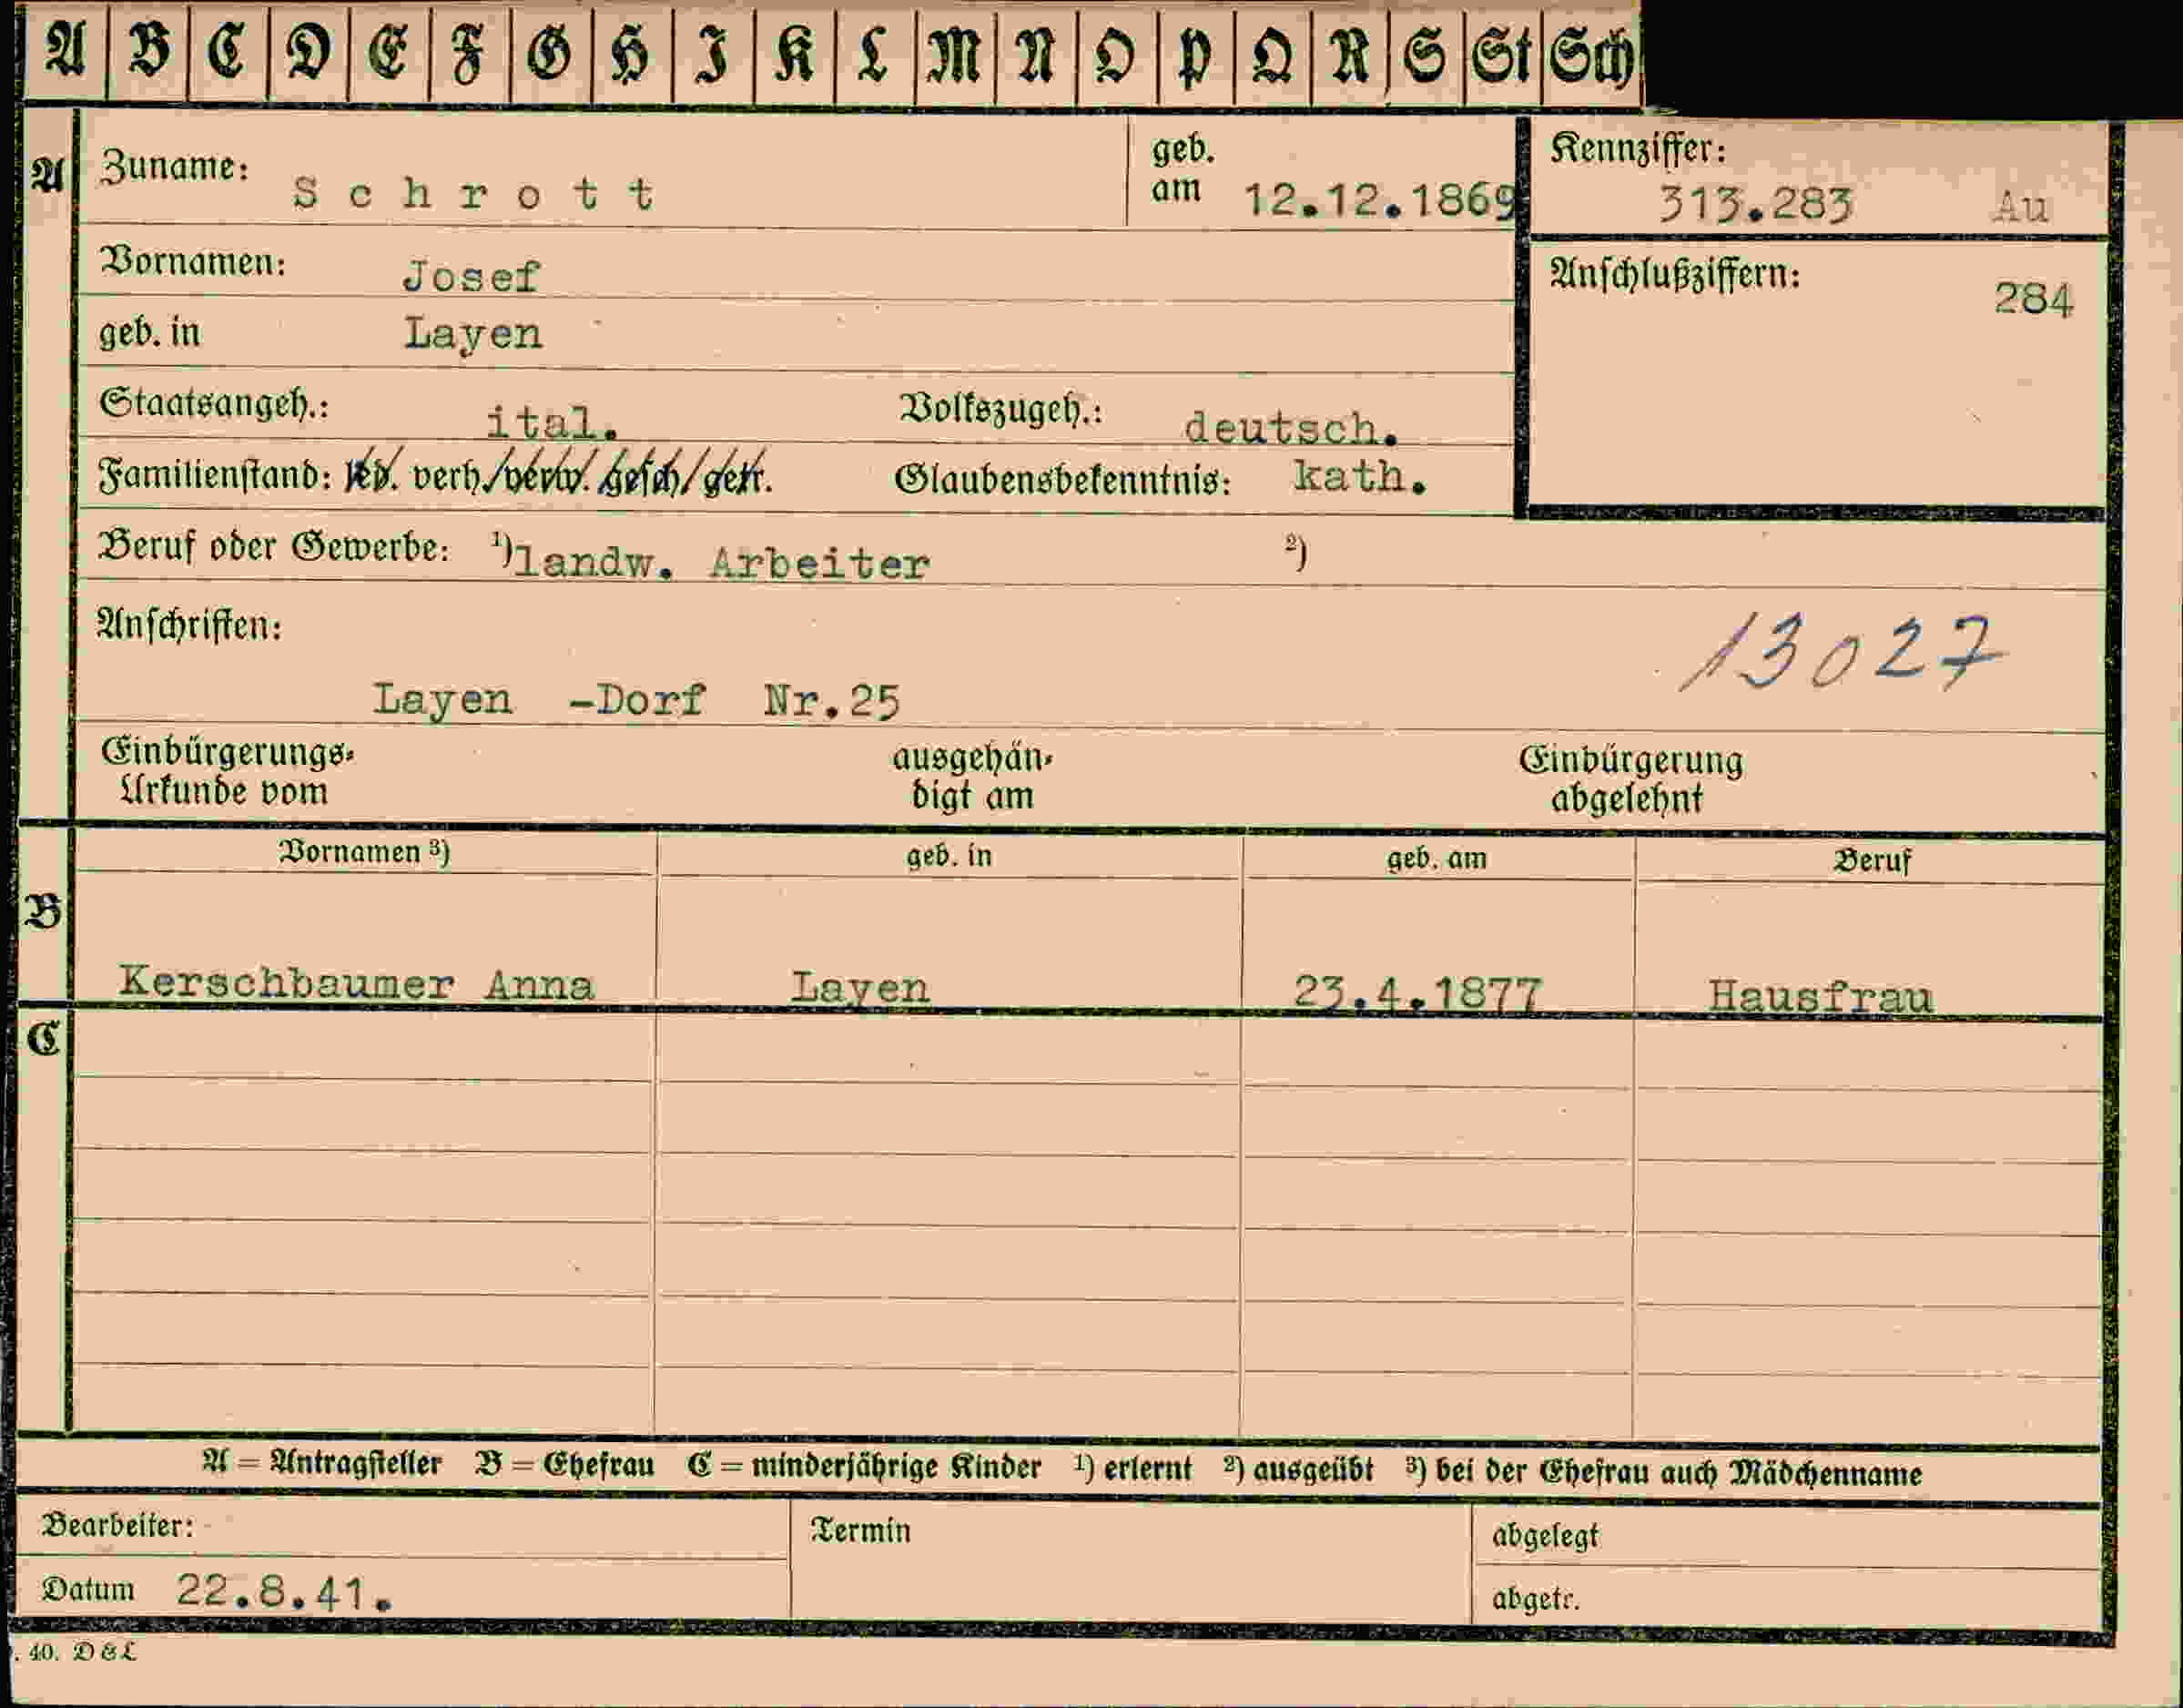 A B C D E F G H I K L M N O P Q R S St Sch
A Zuname: Schrott geb. am 12.12.1869 Kennziffer: 313.283 Au
Vornamen: Josef Anschlußziffern: 284
geb. in Layen
Staatsangeh.: ital. Volkszugeh.: deutsch.
Familienstand: led. verh./verw. gesch/getr. Glaubensbekenntnis: kath.
Beruf oder Gewerbe: ¹)landw. Arbeiter ²)
Anschriften: 13027
Layen -Dorf Nr.25
Einbürgerungs- ausgehän- Einbürgerung
Urkunde vom digt am abgelehnt
Vornamen ³) geb. in geb. am Beruf
B
Kerschbaumer Anna Layen 23.4.1877 Hausfrau
C
A = Antragsteller B = Ehefrau C = minderjährige Kinder ¹) erlernt ²) ausgeübt ³) bei der Ehefrau auch Mädchenname
Bearbeiter: Termin abgelegt
Datum 22.8.41. abgetr.
. 40. D & L